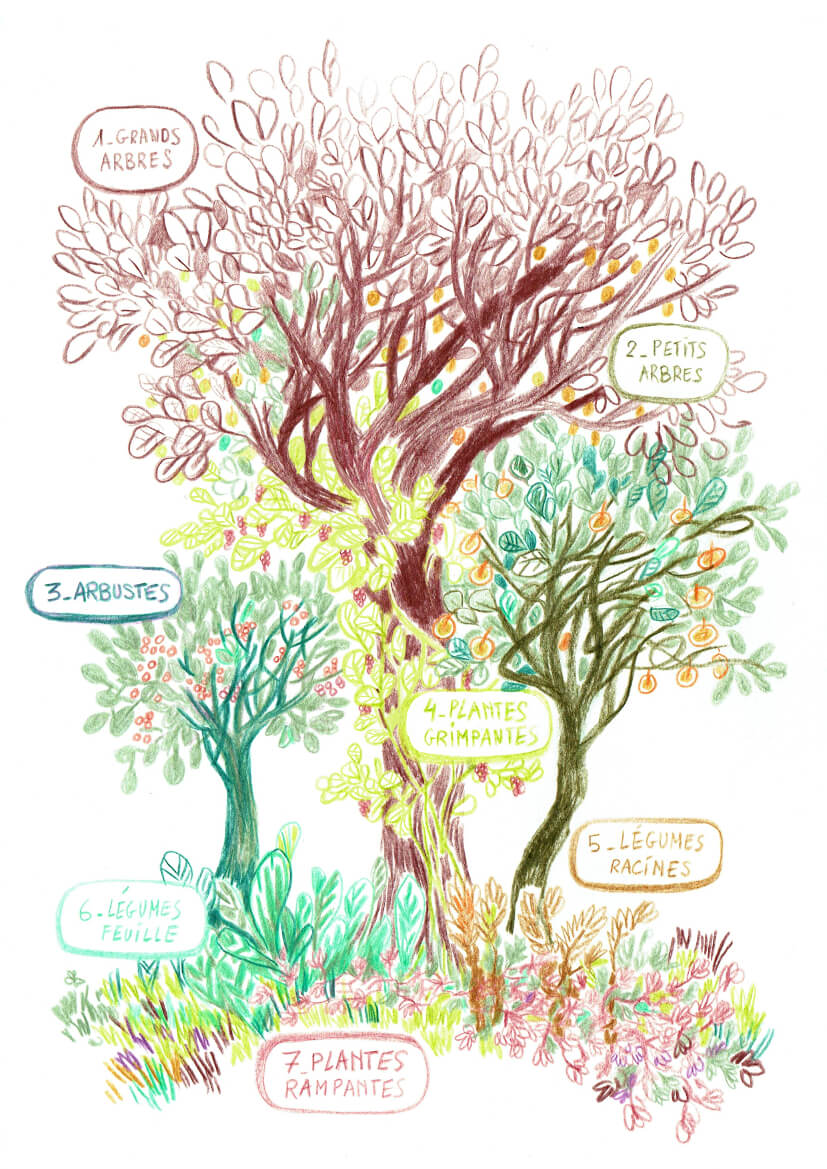 1_GRANDS
ARBRES
2_PETITS
ARBRES
3_ARBUSTES
4_PLANTES
GRIMPANTES
5_LÉGUMES
RACINES
6_LÉGUMES
FEUILLE
7_PLANTES
RAMPANTES